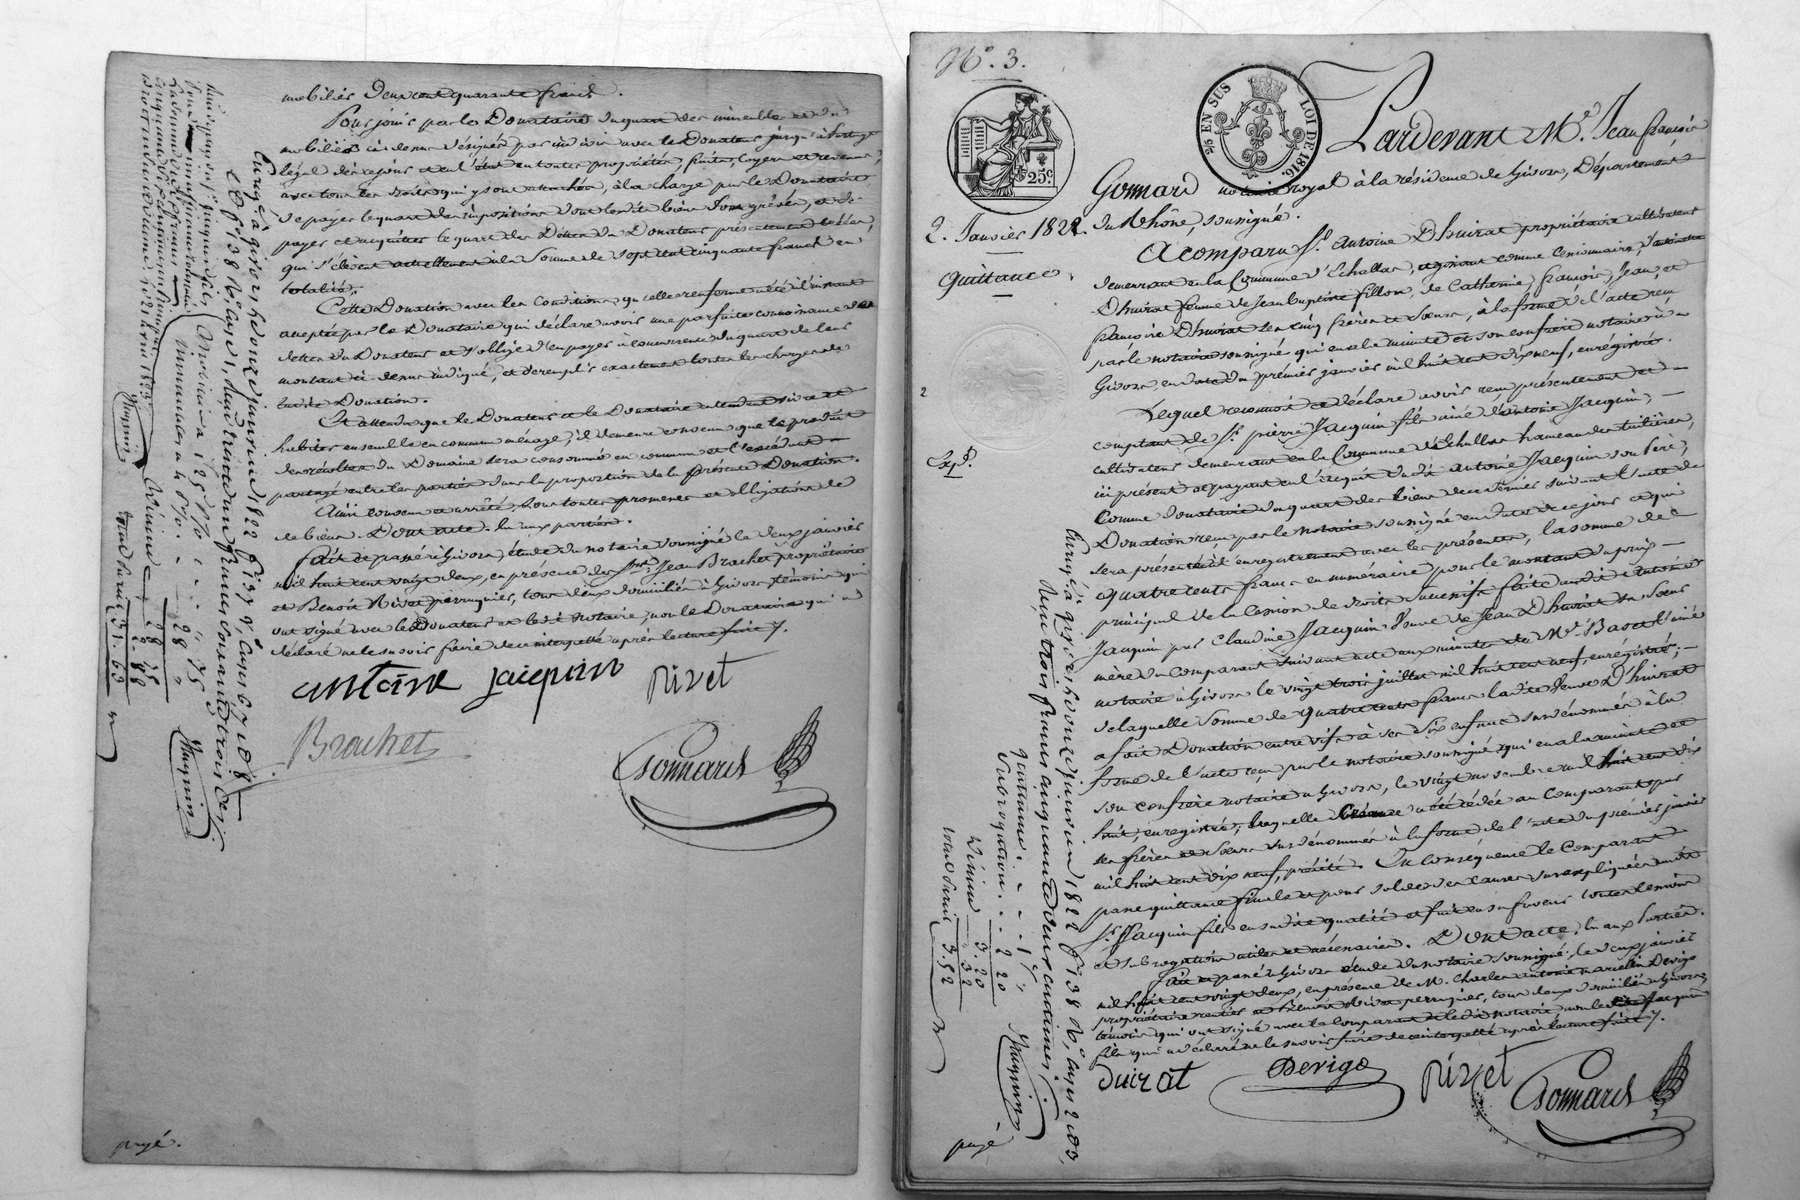 mobilier Deux cent quarante francs.
Pour jouir par le Donataire du quart des immeubles et du
mobilier ci-dessus désignés par indivis avec le Donateur jusqu'à partage
légal dès ce jour et en l'état en toutes propriétés, fruits, loyers et revenus,
avec tous les droits qui y sont attachés, à la charge par le Donataire
de payer le quart des impositions dont lesdits biens sont grévés, et de
payer et acquitter le quart des Dettes du Donateur présentement
qui s'élèvent actuellement à la Somme de sept cent cinquante francs en
totalité.
Cette Donation avec les Conditions qu'elle renferme a été à l'instant
acceptée par le Donataire qui déclare avoir une parfaite connaissance des
dettes du Donateur et s'oblige d'en payer à concurrence du quart de leur
montant ci-dessus indiqué, et de remplir exactement toutes les charges de
ladite Donation.
Et attendu que le Donateur et le Donataire entendent vivre et
habiter ensemble en commun ménage, il demeure convenu que le produit
des récoltes du Domaine sera consommé en commun et l'excédent
partagé entre les parties dans la proportion de la présente Donation.
Ainsi convenu et arrêté, sous toutes promesses et obligations de
de biens. Dont acte. Lu aux parties.
Fait et passé à Givors, étude du notaire soussigné le deux janvier
mil huit cent vingt deux, en présence des Srs. Jean Brachet propriétaire
et Benoit Rivet perruquier, tous deux domiciliés à Givors témoins qui
ont signé avec le Donateur et ledit Notaire, non le Donataire qui a
déclaré ne le savoir faire de ce interpellé après lecture faite ./.
antoine jacquin rivet
Brachet
Gonnard
Enregé à givors le onze janvier 1822 fo 137 vo, cases 6, 7 et 8
et fo 138 Ro case 1, Reçu trente un francs soixante trois ces
Hugnin
Mobilier à 1.25
Immeubles à 4 p%
Décime
Total
31.63
payé.
No. 3.
25 EN SUS LOI DE 1816.
25c.
2. Janvier 1822.
Quittance.
2
Expd.
Pardevant Me. Jean françois
Gonnard notaire royal à la résidence de Givors, Département
du Rhône, soussigné.
A comparu Sr. Antoine Dhuirat propriétaire cultivateur
demeurant en la Commune d'Echallas, agissant comme Cessionnaire, d'antoinette
Dhuirat femme de Jean baptiste fillon, de Catherine, françois, Jean, et
françoise Dhuirat ses cinq frères et sœurs, à la forme de l'acte reçu
par le notaire soussigné qui en a la minute et son confrère notaire à
Givors, en date du premier janvier mil huit cent dix neuf, enregistré.
Lequel reconnoit et déclare avoir reçu présentement et
comptant de Sr. pierre Jacquin fils ainé d'antoine Jacquin,
cultivateur demeurant en la Commune d'Echallas hameau des tuilières,
ici présent et payant en l'acquit dudit antoine Jacquin son Père,
Comme Donataire du quart des biens de ce dernier suivant l'acte de
Donation reçu par le notaire soussigné en date de ce jour et qui
sera présenté à l'enregistrement avec les présentes, la somme de
quatre cents francs en numéraire pour le montant du prix
principal de la Cession de droits successifs faite audit Antoine
Jacquin par Claudine Jacquin Veuve de Jean Dhuirat sa sœur
mère du comparant suivant acte aux minutes de Me. Basset l'ainé
notaire à Givors le vingt trois juillet mil huit cent neuf, enregistré;
de laquelle somme de quatre cents francs ladite Veuve Dhuirat
a fait Donation entre vifs à ses Six enfans susdénommés à la
forme de l'acte reçu par le notaire soussigné qui en a la minute et
son confrère notaire à Givors, le vingt novembre mil huit cent dix
huit, enregistré; laquelle Créance a été cédée au Comparant par
ses frères et sœurs susdénommés à la forme de l'acte du premier janvier
mil huit cent dix neuf, précité. En conséquence le Comparant
passe quittance finale et pour solde des causes susexpliquées audit
Sr. Jacquin fils en sadite qualité et fait en sa faveur toutes
et subrogations utiles et nécessaires. Dont acte, lu aux Parties.
Fait et passé à Givors étude du notaire soussigné, le deux janvier
mil huit cent vingt deux, en présence de M. Charles antoine marcellin Devigo
propriétaire rentier et Benoit Rivet perruquier, tous deux domiciliés à Givors
témoins qui ont signé avec le Comparant et ledit Notaire non ledit Jacquin
fils qui a déclaré ne le savoir faire de ce interpellé après lecture faite ./.
Duirat Devigo rivet Gonnard
Enregé à givors le onze janvier 1822 fo 138 Ro, cases 2 et 3,
Reçu trois francs cinquante deux centimes
Quittance 1 "
Subrogation 2 20
3.20
Décime " 32
total 3.52
Hugnin
payé